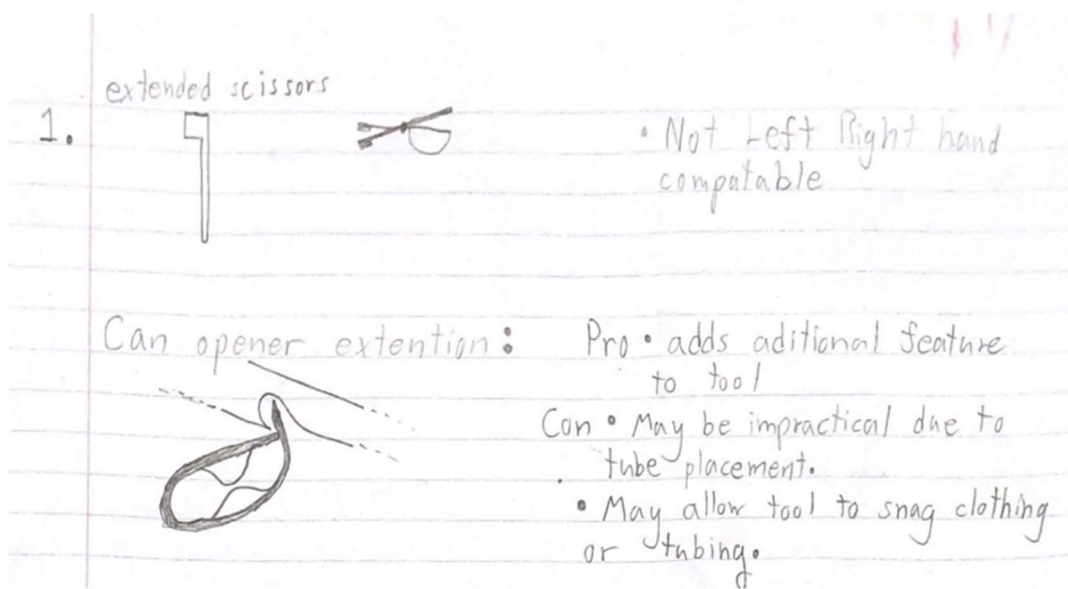 extended scissors
1.
• Not Left Right hand
compatable
Can opener extention:
Pro • adds aditional feature
to tool
Con • May be impractical due to
tube placement.
• May allow tool to snag clothing
or tubing.